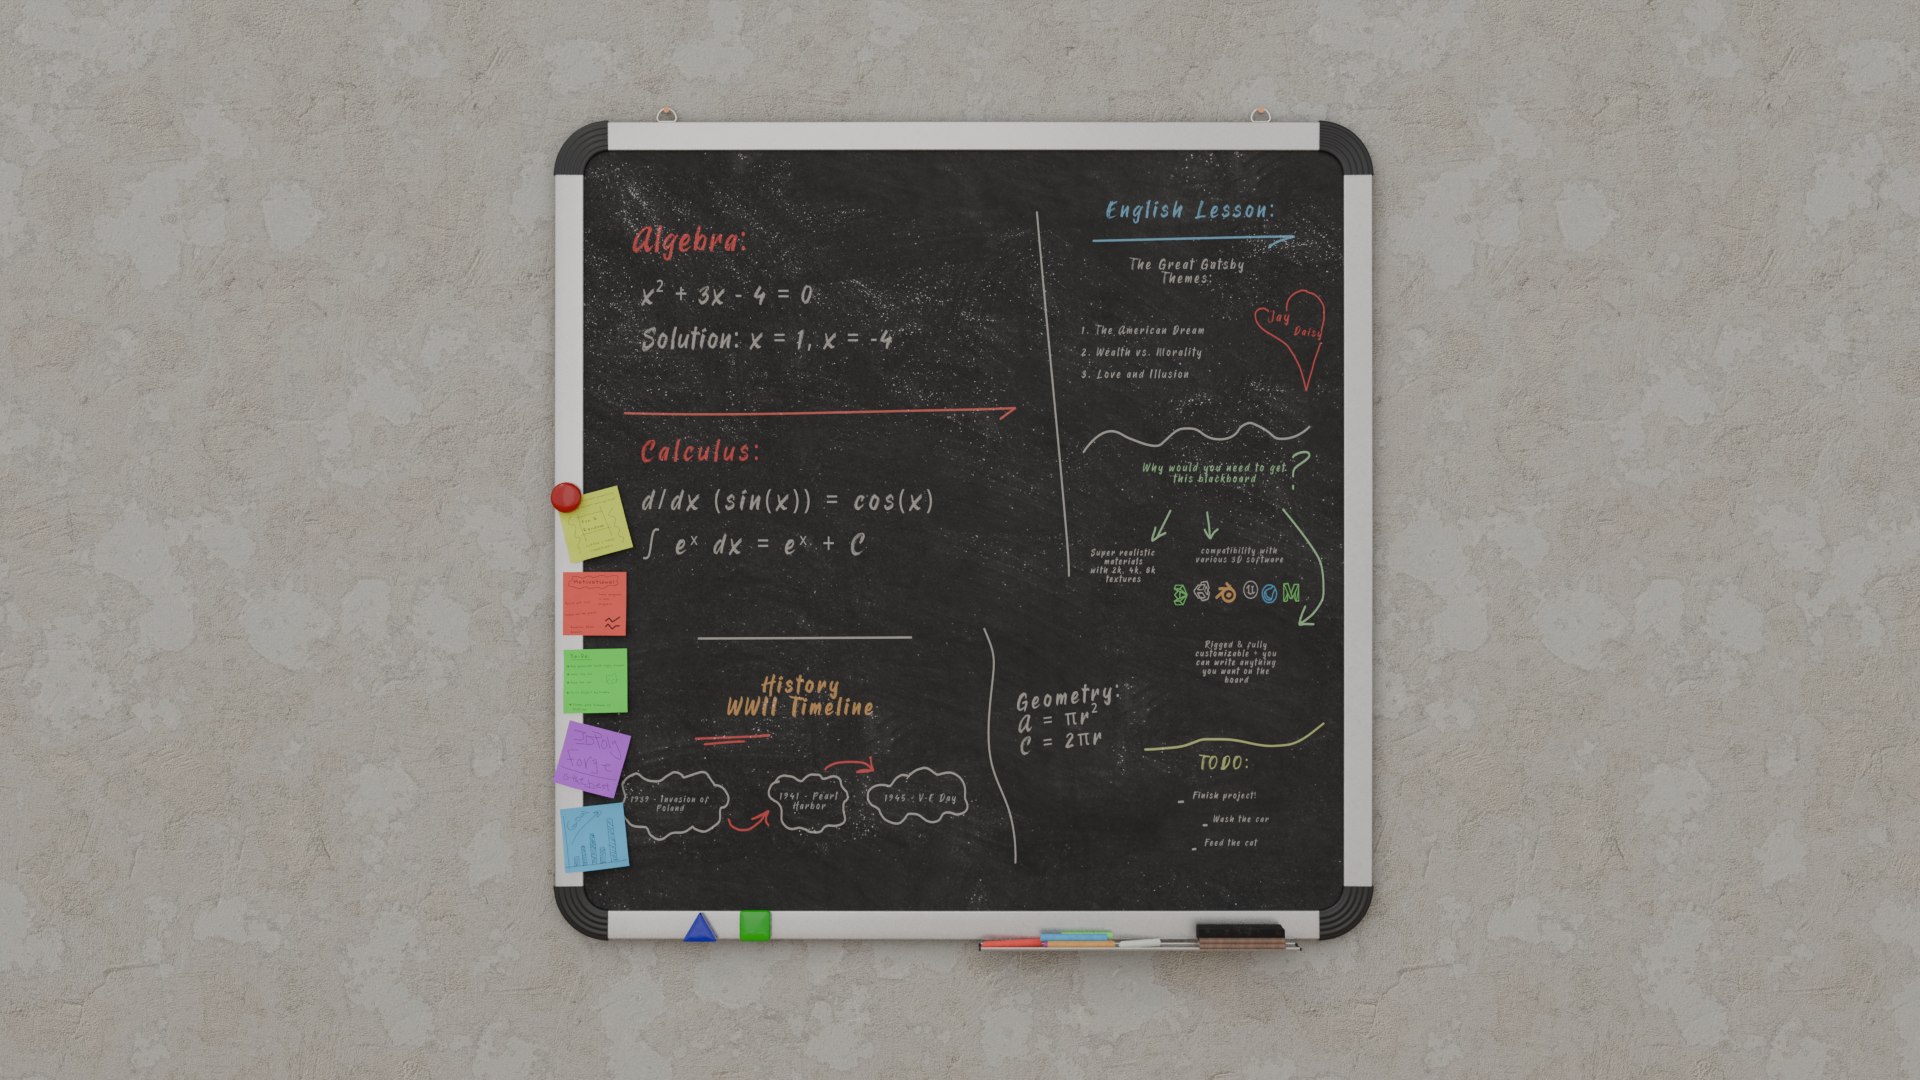 Algebra:
x² + 3x - 4 = 0
Solution: x = 1, x = -4
Calculus:
d/dx (sin(x)) = cos(x)
∫ eˣ dx = eˣ + C
History
WWII Timeline
1939 - Invasion of
Poland
1941 - Pearl
Harbor
1945 - V-E Day
English Lesson:
The Great Gatsby
Themes:
1. The American Dream
2. Wealth vs. Morality
3. Love and Illusion
Jay
Daisy
Why would you need to get
this blackboard
?
Super realistic
materials
with 2k, 4k, 8k
textures
compatibility with
various 3D software
Rigged & fully
customizable - you
can write anything
you want on the
board
Geometry:
A = πr²
C = 2πr
TODO:
- Finish project!
- Wash the car
- Feed the cat
Motivational
To-Do:
Forge